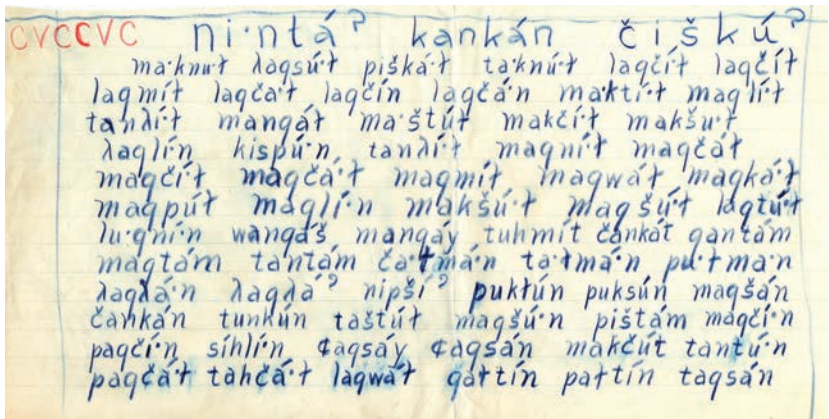 CVCCVC ni·ntáʔ kankán čiškúʔ
ma·knu·ł λaqsú·ł pišká·ł ta·knú·ł laqčíł laqčí·ł
laqmíł laqča·ł laqčín laqčá·n maktí·ł maqlí·ł
tanλí·ł manqáł ma·štúł makčí·ł makšu·ł
λaqlí·n kispú·n tanλí·ł maqní·ł maqčáł
maqčí·ł maqčá·ł maqmíł maqwáł maqká·ł
maqpúł maqlí·n makšú·ł maqšú·ł laqtú·ł
lu·qní·n wanqáš manqáy tuhmíł čankáł qantám
maqtám tantám ča·łmá·n ta·łmá·n pu·łma·n
λaqλá·n λaqλáʔ nipšíʔ pukłún puksún maqšán
čankán tunkún taštúł maqšú·n pištám maqčí·n
paqčí·n síhlí·n ¢aqsáy ¢aqsán makčúł tantú·n
paqčá·ł tahčá·ł laqwáł qałtín pałtín taqsán